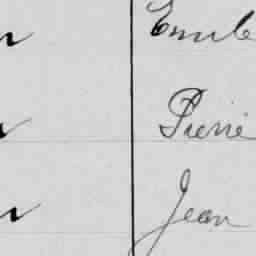 Emile
Pierre
Jean